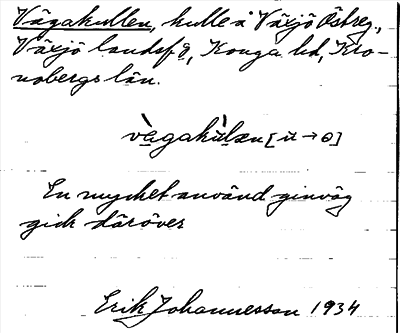 Vägakullen, kulle å Växjö Östreg.,
Växjö landsfg, Konga hd, Kro-
nobergs län.
vàgakùlən [ù→ɵ]
En mycket använd ginväg
gick däröver
Erik Johannesson 1934